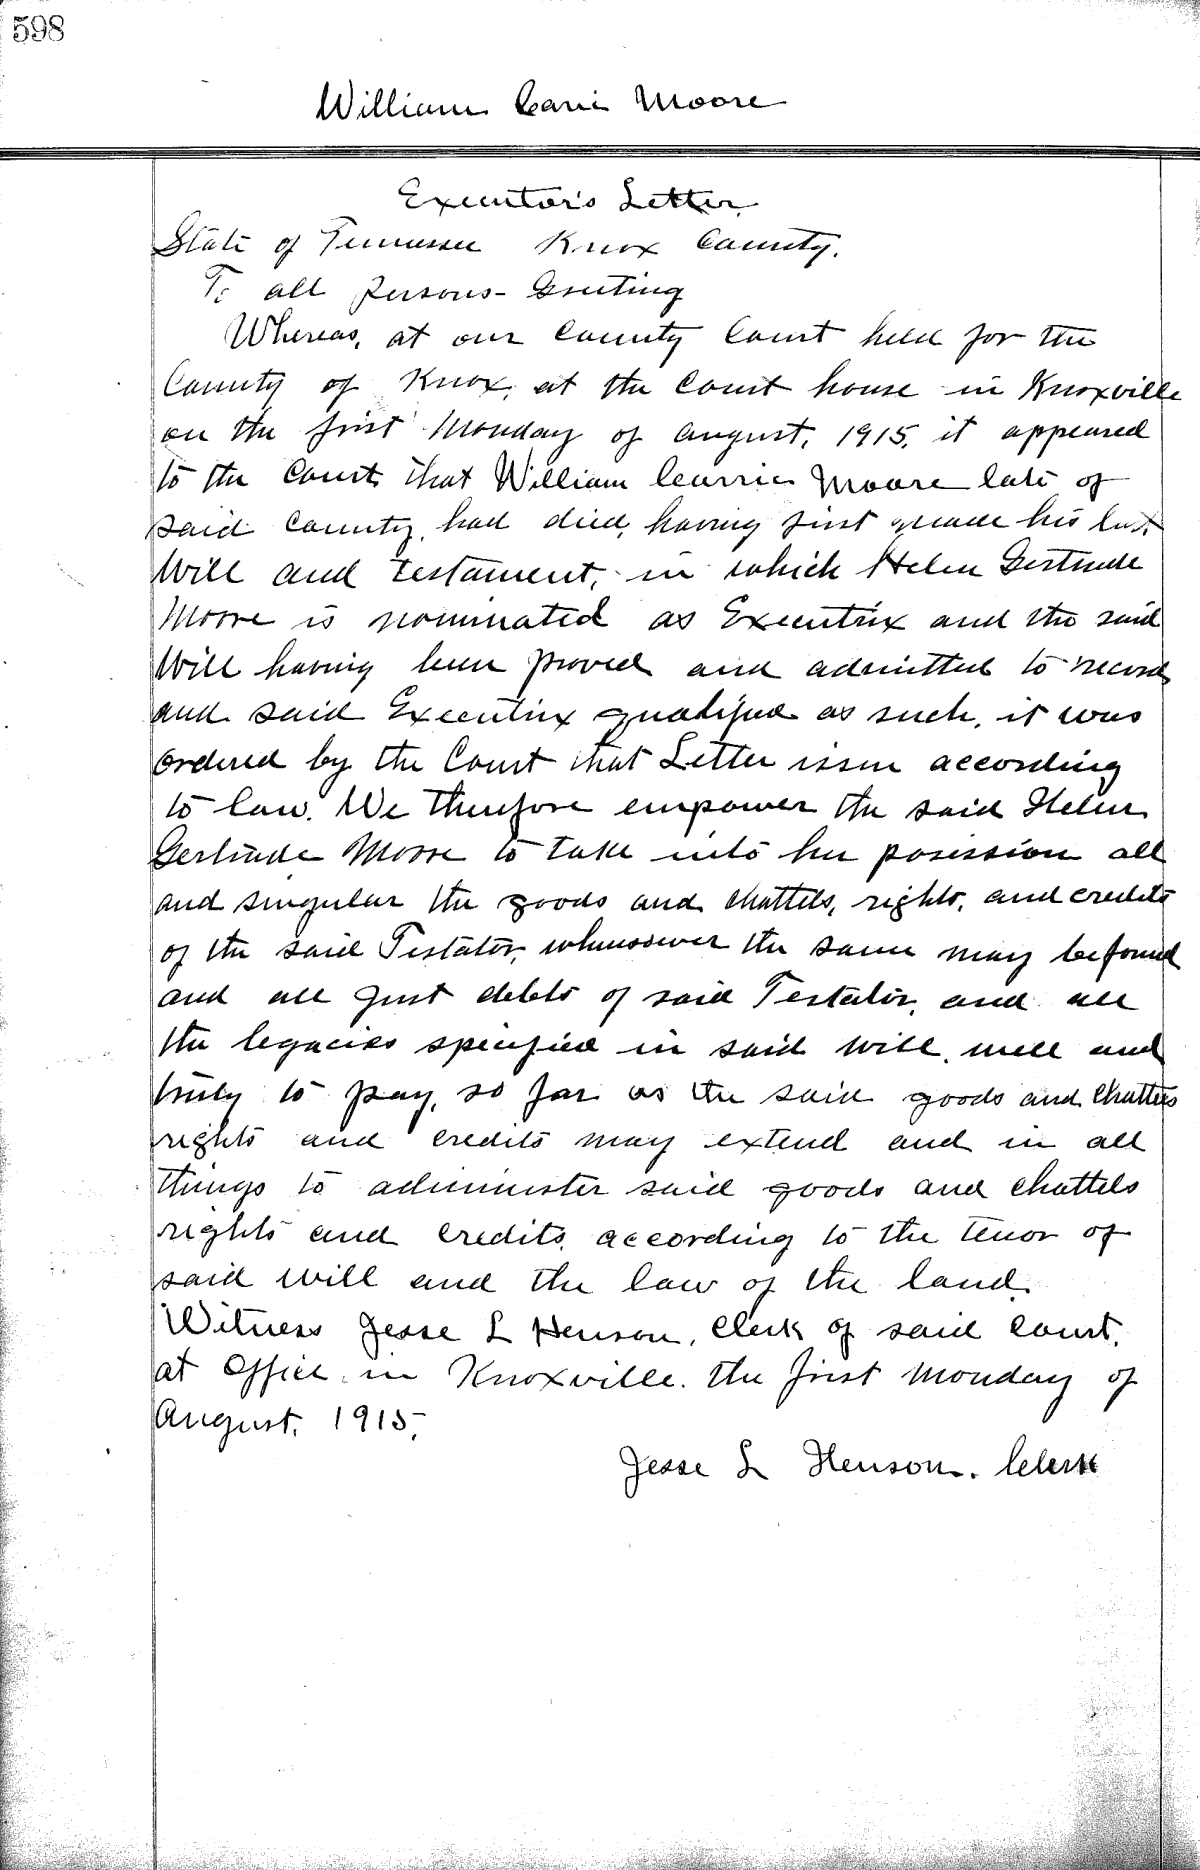 598
William Carri Moore
Executor's Letter
State of Tennessee Knox County.
To all Persons - Greeting
Whereas, at our County Court held for the
County of Knox, at the Court house in Knoxville
on the first Monday of August, 1915, it appeared
to the Court, that William Currie Moore late of
said County, had died, having first made his last
Will and Testament, in which Helen Gertrude
Moore is nominated as Executrix and the said
Will having been proved and admitted to record
and said Executrix qualified as such, it was
ordered by the Court that Letter issue according
to law. We therefore empower the said Helen
Gertrude Moore to take into her posession all
and singular the goods and chattels, rights, and credits
of the said Testator, whensoever the same may be found
and all just debts of said Testator, and all
the legacies specified in said will, well and
truly to pay, so far as the said goods and Chattels
rights and credits may extend and in all
things to administer said goods and chattels
rights and credits, according to the tenor of
said will and the law of the land.
Witness Jesse L Henson, Clerk of said Court,
at office in Knoxville. the first Monday of
August, 1915,
Jesse L Henson. Clerk